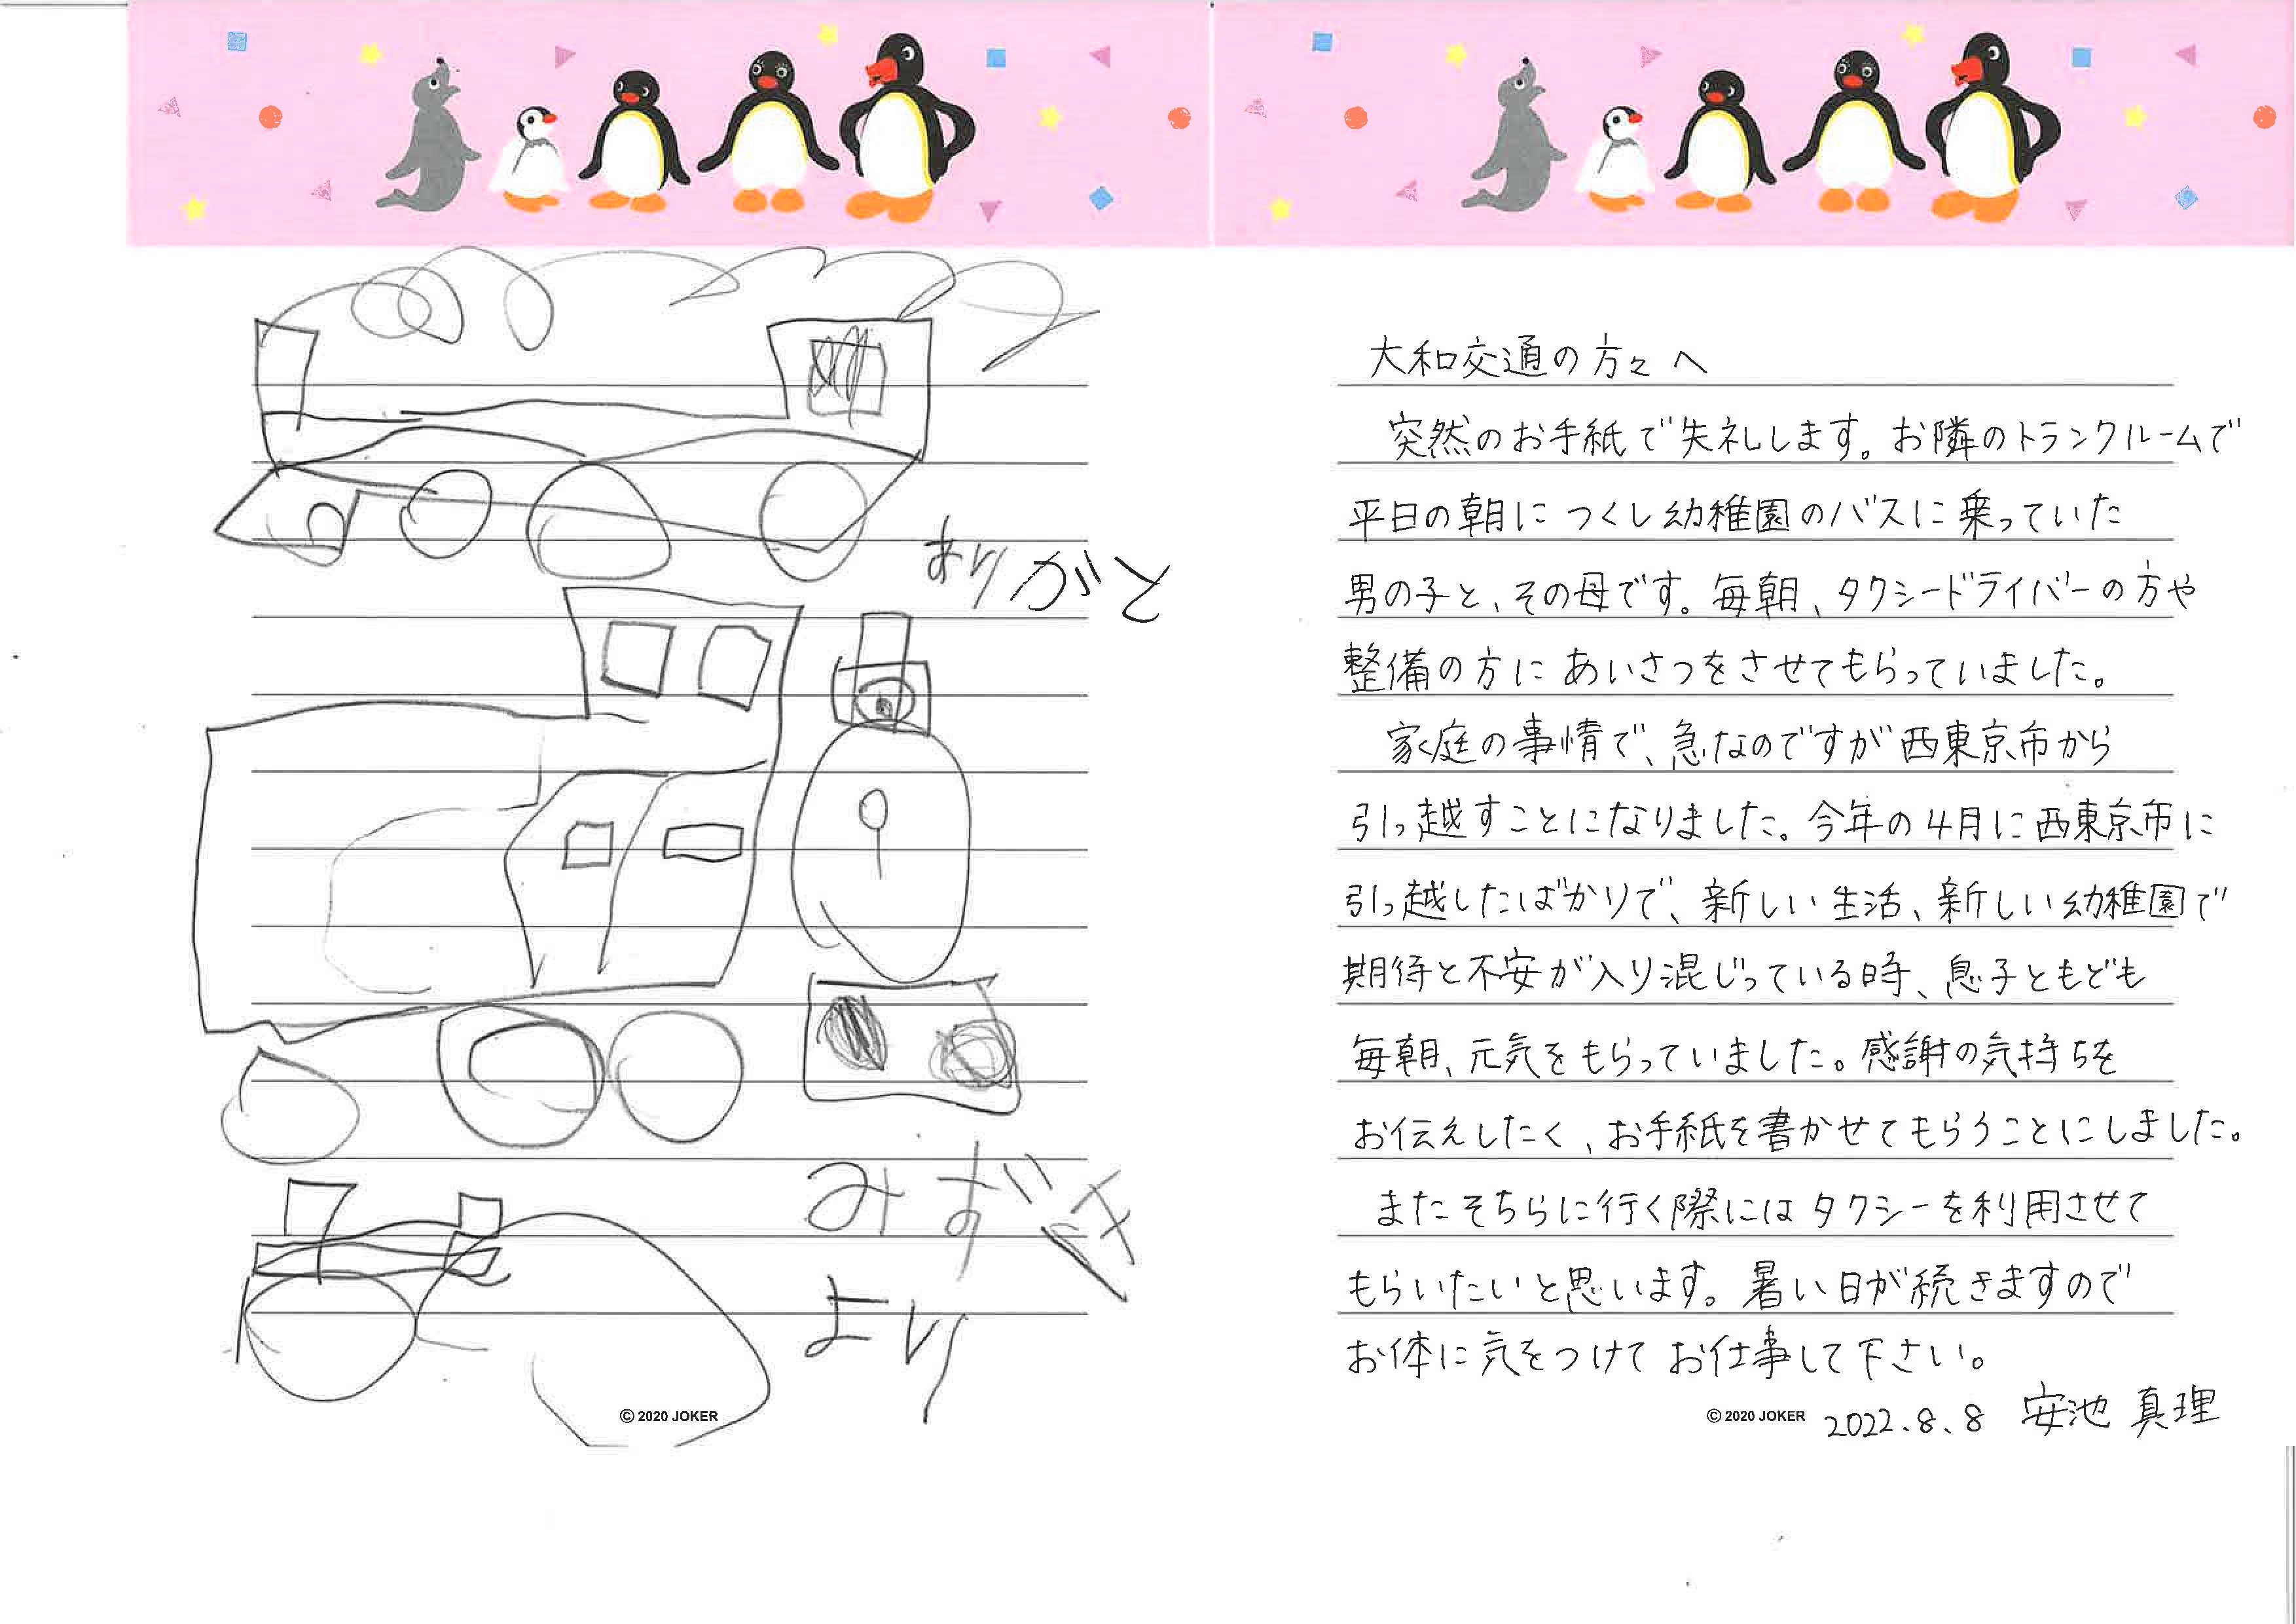 ありがと
みずき
より
© 2020 JOKER
大和交通の方々へ
突然のお手紙で失礼します。お隣のトランクルームで
平日の朝につくし幼稚園のバスに乗っていた
男の子と、その母です。毎朝、タクシードライバーの方や
整備の方にあいさつをさせてもらっていました。
家庭の事情で、急なのですが西東京市から
引っ越すことになりました。今年の4月に西東京市に
引っ越したばかりで、新しい生活、新しい幼稚園で
期待と不安が入り混じっている時、息子ともども
毎朝、元気をもらっていました。感謝の気持ちを
お伝えしたく、お手紙を書かせてもらうことにしました。
またそちらに行く際にはタクシーを利用させて
もらいたいと思います。暑い日が続きますので
お体に気をつけてお仕事して下さい。
© 2020 JOKER 2022.8.8 安池 真理